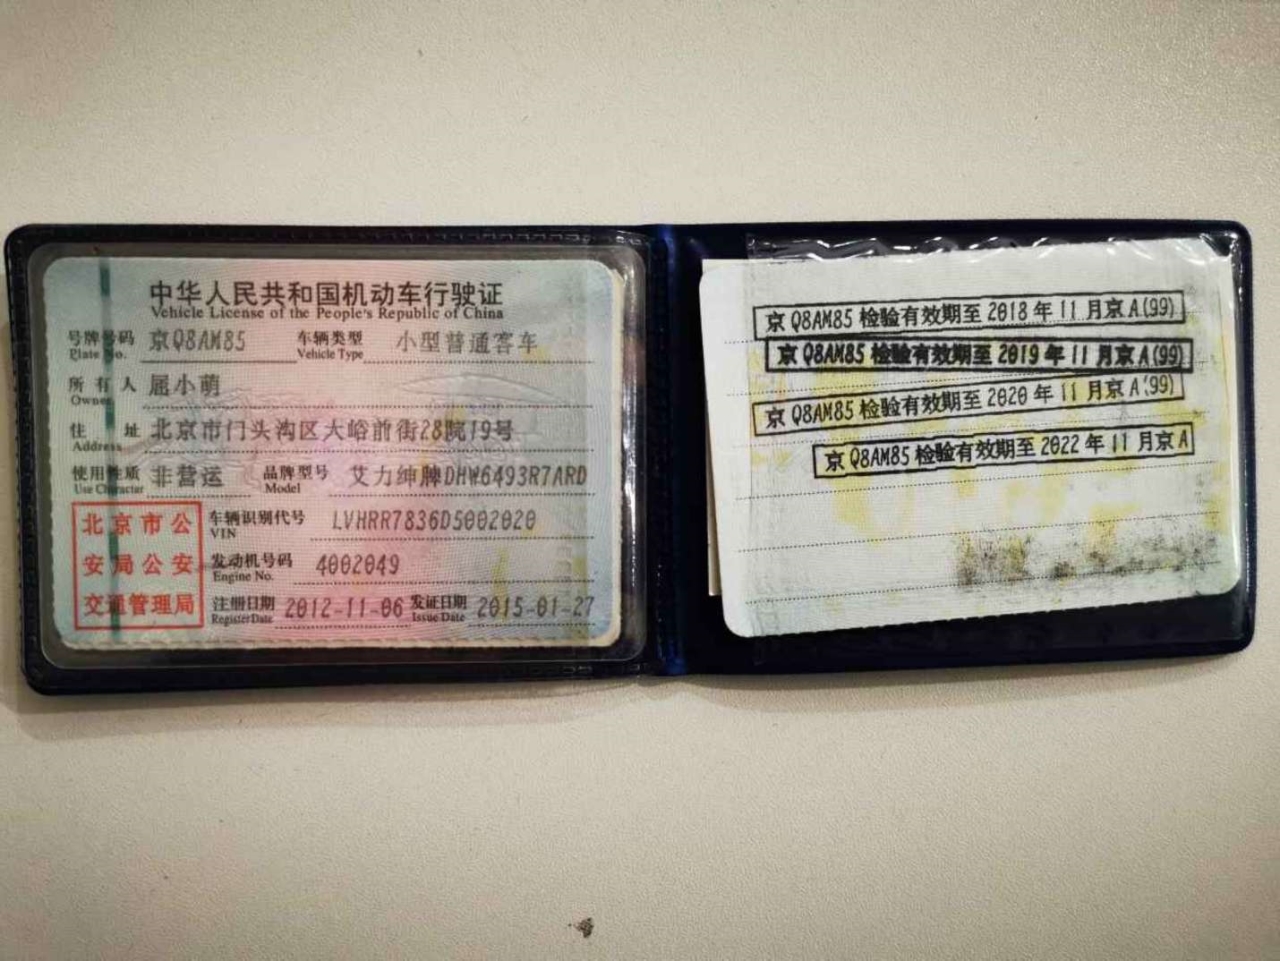 中华人民共和国机动车行驶证
Vehicle License of the People's Republic of China
号牌号码 京Q8AM85 车辆类型 小型普通客车
Plate No. Vehicle Type
所有人 屈小萌
Owner
住址 北京市门头沟区大峪前街28院19号
Address
使用性质 非营运 品牌型号 艾力绅牌DHW6493R7ARD
Use Character Model
北京市公
安局公安
交通管理局
车辆识别代号 LVHRR7836D5002020
VIN
发动机号码 4002049
Engine No.
注册日期 2012-11-06 发证日期 2015-01-27
Register Date Issue Date
京Q8AM85检验有效期至2018年11月京A(99)
京Q8AM85检验有效期至2019年11月京A(99)
京Q8AM85检验有效期至2020年11月京A(99)
京Q8AM85检验有效期至2022年11月京A